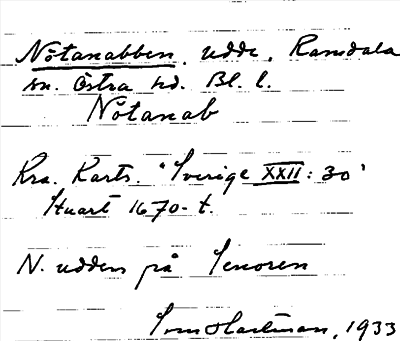 Nötanabben, udde, Ramdala
sn. Östra hd. Bl. l.
Nötanab
Kra. Karts. "Sverige XXII: 30"
Stuart 1670-t.
N. udden på Senoren
Sven Hartman, 1933